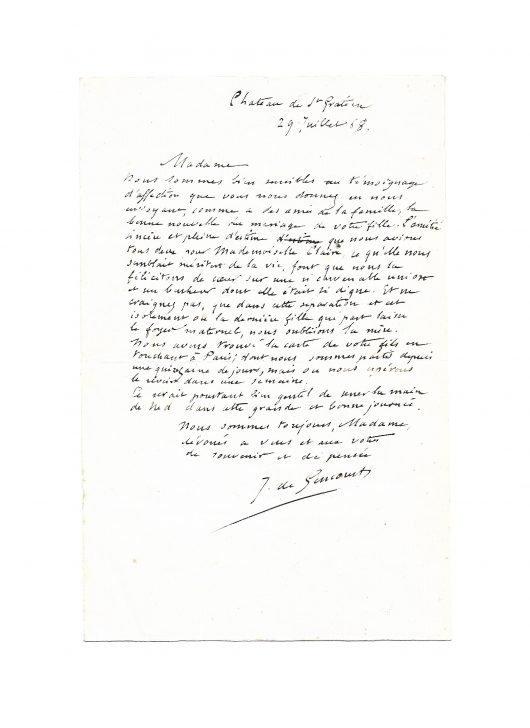 Chateau de St Gratien
29 Juillet 68.
Madame
Nous sommes bien sensibles au témoignage
d'affection que vous nous donnez en nous
envoyant, comme a des amis de la famille, la
bonne nouvelle du mariage de votre fille. L'amitié
sincère et pleine d'estime que nous avions
tous deux pour Mademoiselle Claire, ce qu'elle nous
semblait mériter de la vie, font que nous la
félicitons de cœur sur une si convenable union
et un bonheur dont elle était si digne. Et ne
craignez pas, que dans cette séparation et cet
isolement où la dernière fille que part laisse
le foyer maternel, nous oublions la mère.
Nous avons trouvé la carte de votre fils en
touchant à Paris, dont nous sommes partis depuis
une quinzaine de jours, mais où nous espérons
le revoir dans une semaine.
Ce serait pourtant bien gentil de serrer la main
de Ned dans cette grande et bonne journée.
Nous sommes toujours, Madame,
dévoués a vous et aux votres
de souvenir et de pensée
J. de Goncourt